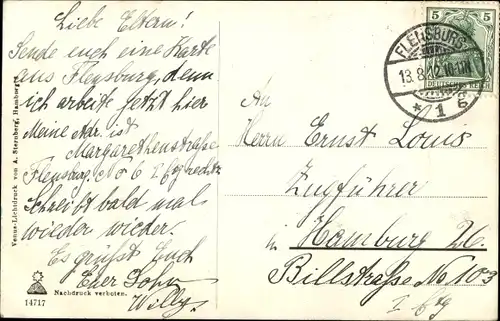 Liebe Eltern!
Sende euch eine Karte
aus Flensburg, denn
ich arbeite jetzt hier
Meine Adr. ist
Margarethenstraße
Flensburg. No 6 I. Etg rechts
Schreibt bald mal
wieder wieder.
Es grüßt Euch
Euer Sohn
Willy.
Venus-Lichtdruck von A. Sternberg, Hamburg
Nachdruck verboten.
14717
5 5
DEUTSCHES REICH
FLENSBURG
13.8.12.10-11V.
* 1 g
An
Herrn Ernst Louis
Zugführer
in Hamburg 26.
Billstraße No 103
I Etg